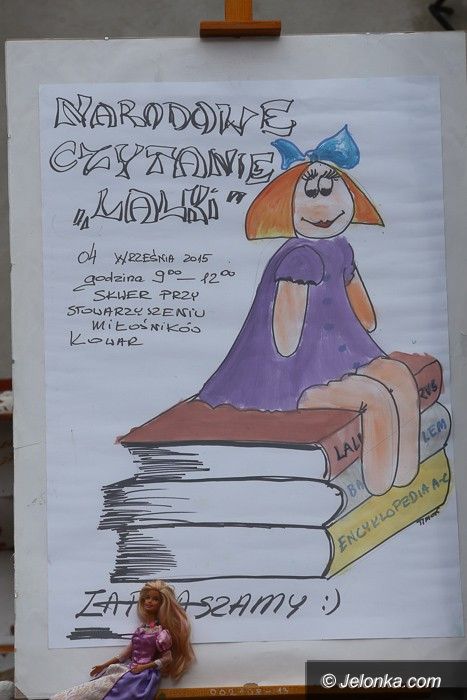 NARODOWE
CZYTANIE
„LALKI"
04 WRZEŚNIA 2015
godzina 9⁰⁰ – 12⁰⁰
SKWER PRZY
STOWARZYSZENIU
MIŁOŚNIKÓW
KOWAR
LAL
RUS
BA
LEM
ENCYKLOPEDIA A-C
ZAPRASZAMY :)
© Jelonka.com